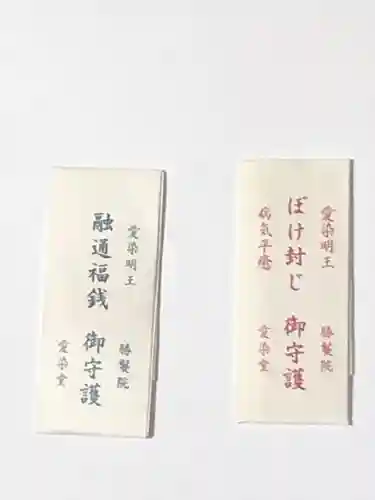 愛染明王
融通福銭 御守護
勝鬘院
愛染堂
愛染明王 勝鬘院
ぼけ封じ 御守護
病気平癒 愛染堂